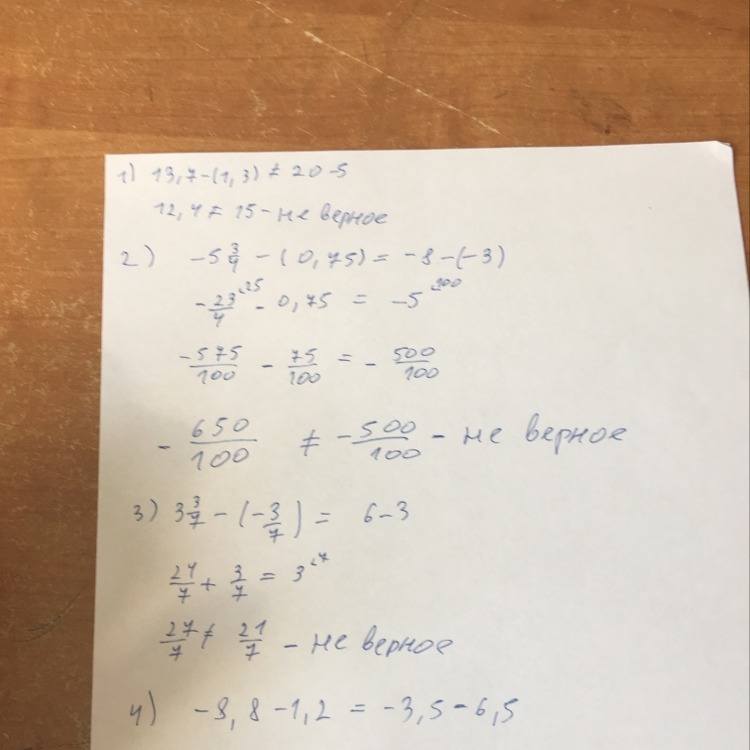 1) 13,7-(1,3) ≠ 20-5
12,4 ≠ 15 - не верное
2) -5 3/4 - (0,75) = -8-(-3)
-23/4 ^25 - 0,75 = -5 ^100
-575/100 - 75/100 = - 500/100
- 650/100 ≠ -500/100 - не верное
3) 3 3/7 - (-3/7) = 6-3
24/7 + 3/7 = 3 ^7
27/7 ≠ 21/7 - не верное
4) -8,8-1,2 = -3,5-6,5